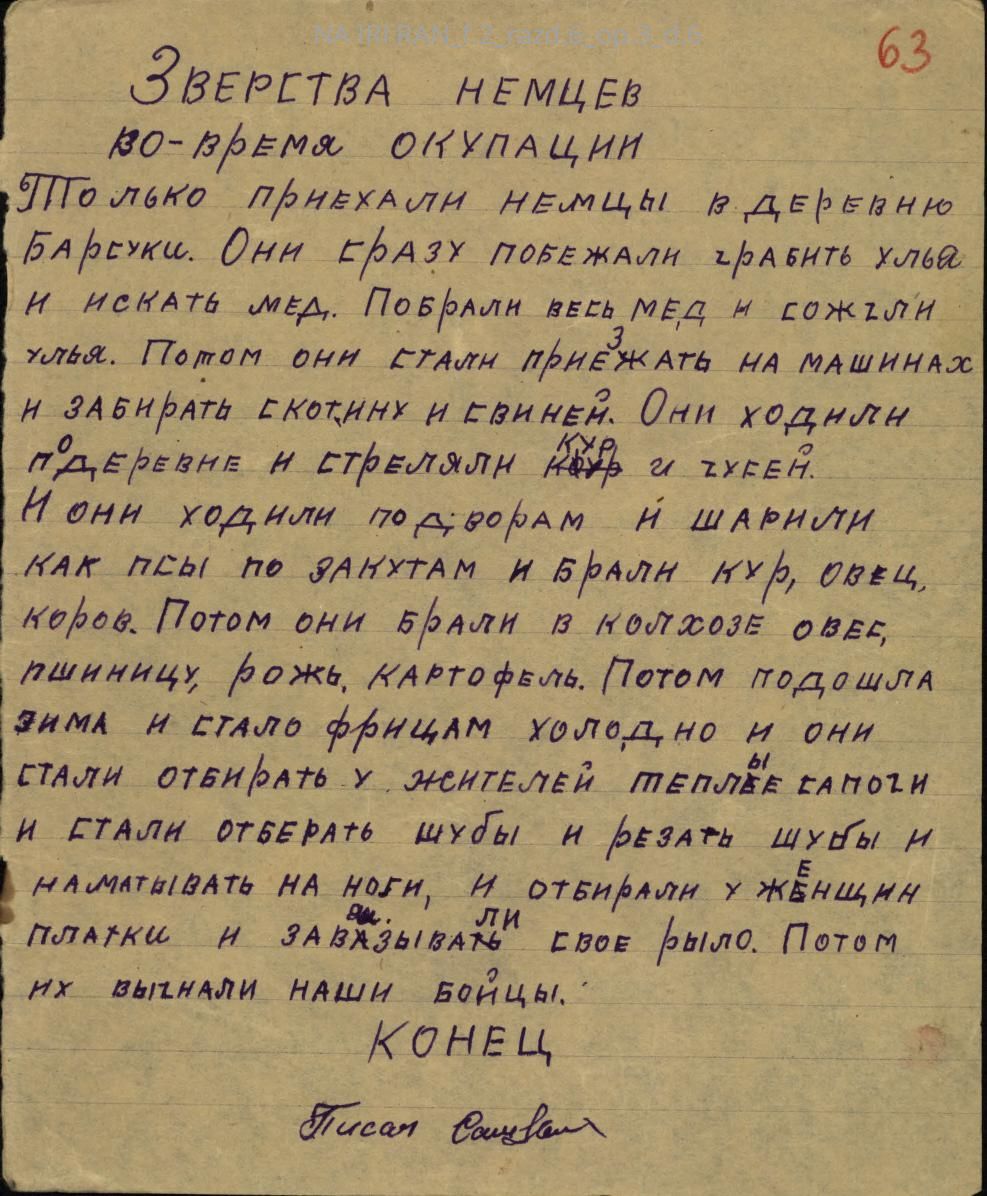 NA IRI RAN_f.2_razd.6_op.3_d.6
63
Зверства немцев
во-время окупации
Только приехали немцы в деревню
Барсуки. Они сразу побежали грабить улья
и искать мед. Побрали весь мед и сожгли
улья. Потом они стали приезжать на машинах
и забирать скотину и свиней. Они ходили
по деревне и стреляли кур и гусей.
И они ходили по дворам и шарили
как псы по закутам и брали кур, овец,
коров. Потом они брали в колхозе овес,
пшиницу, рожь, картофель. Потом подошла
зима и стало фрицам холодно и они
стали отбирать у жителей теплые сапоги
и стали отберать шубы и резать шубы и
наматывать на ноги, и отбирали у женщин
платки и завязывали свое рыло. Потом
их выгнали наши бойцы.
Конец
Писал